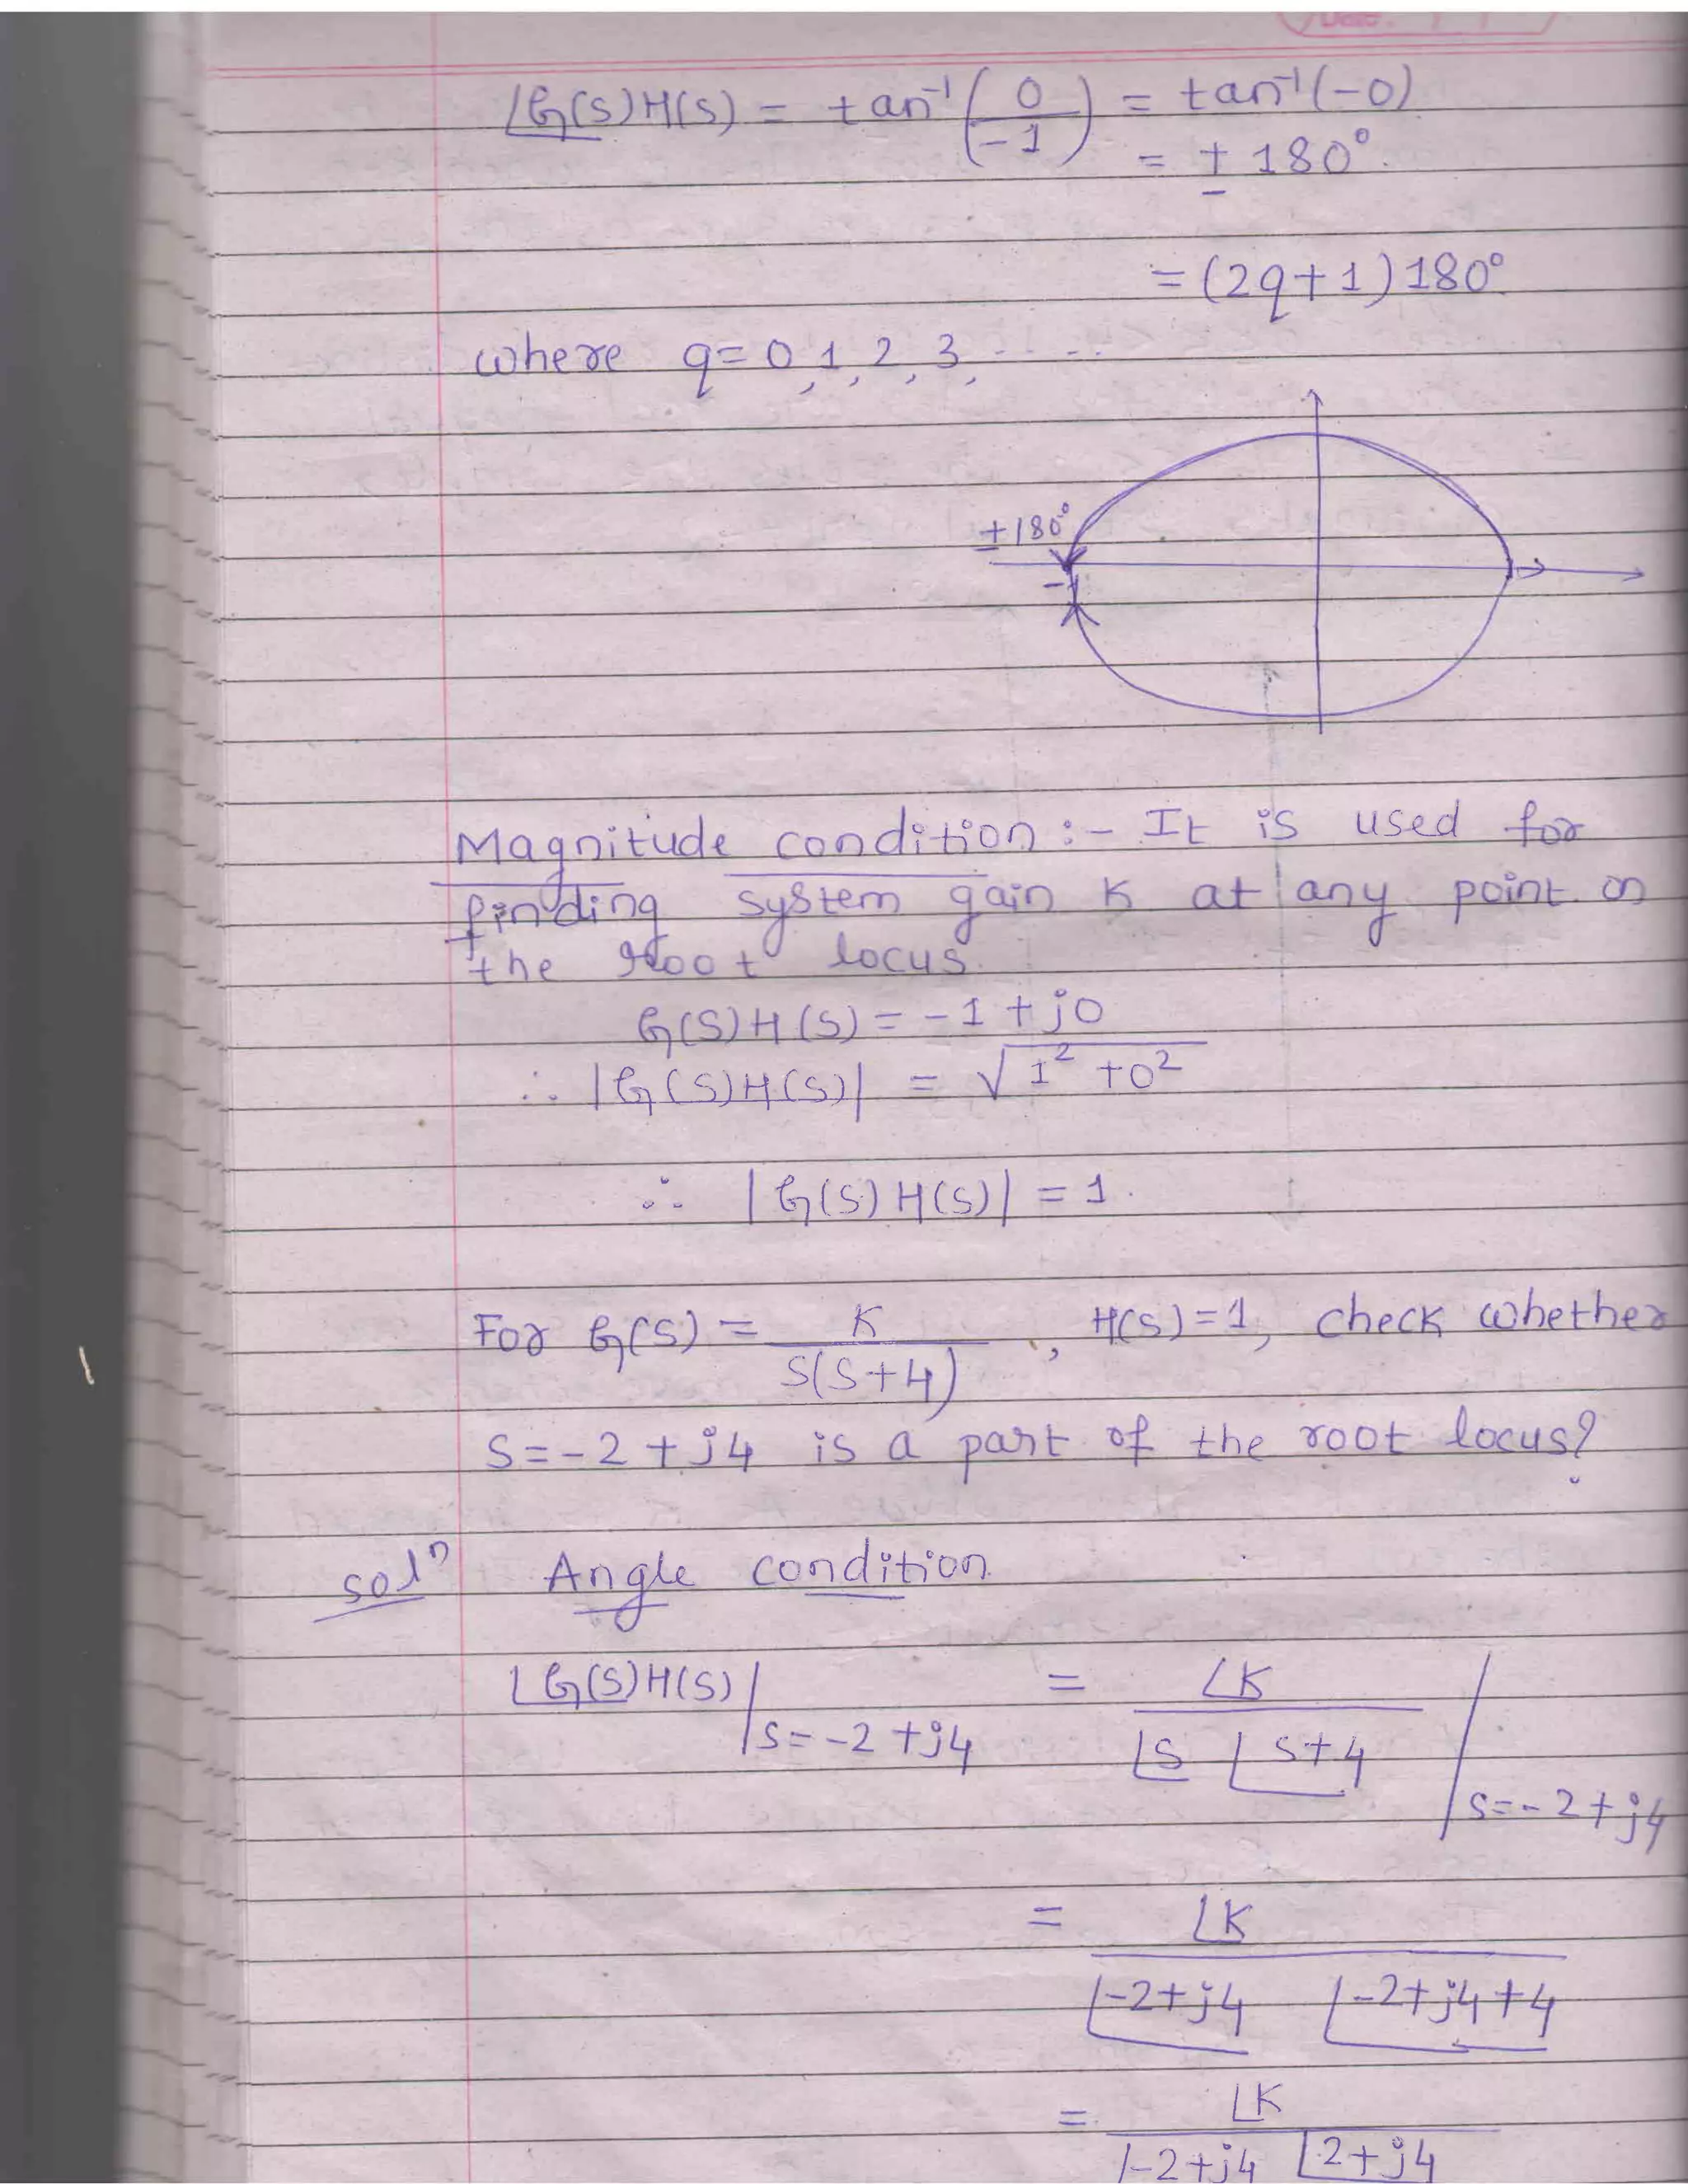 Date.
∠G(s)H(s) = tan⁻¹(0/-1) = tan⁻¹(-0)
= ± 180°.
= (2q+1)180°.
where q = 0, 1, 2, 3, - - - -
±180°
-1
Magnitude condition :- It is used for
finding system gain K at any point on
the root locus.
G(s)H(s) = -1 + j0
∴ |G(s)H(s)| = √(1² + 0²)
∴ |G(s)H(s)| = 1.
For G(s) = K/(s(s+4)), H(s)=1, check whether
s = -2 + j4 is a part of the root locus?
solⁿ Angle condition.
∠G(s)H(s)|s=-2+j4 = ∠K/(∠s ∠s+4)|s=-2+j4
= ∠K/(∠-2+j4 ∠-2+j4+4)
= ∠K/(∠-2+j4 ∠2+j4)